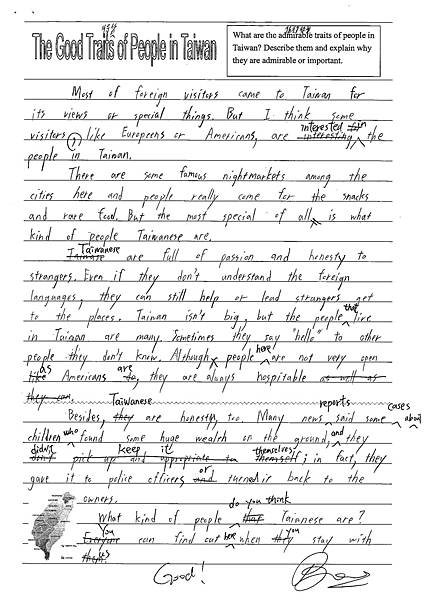 The Good Traits of People in Taiwan
What are the admirable traits of people in
Taiwan? Describe them and explain why
they are admirable or important.
Most of foreign visitors came to Taiwan for
its views or special things. But I think some
visitors, like Europeens or Americans, are interesting interested in the
people in Taiwan.
There are some famous nightmarkets among the
cities here and people really come for the snacks
and rare food. But the most special of all, is what
kind of people Taiwanese are.
Taiwanese are full of passion and honesty to
strangers. Even if they don't understand the foreign
languages, they can still help or lead strangers get
to the places. Taiwan isn't big, but the people that live
in Taiwan are many. Sometimes they say "hello" to other
people they don't know. Although people here are not very open
like as Americans are, they are always hospitable as well as
they can.
Besides, they Taiwanese are honesty, too. Many news reports said some cases about
children who found some huge wealth on the ground, and they
didn't pick up and keep it themselves; in fact, they
gave it to police officers and or turned it back to the
owners.
What kind of people that do you think Taiwanese are?
Everyone You can find out here when they you stay with
them. us
Good!